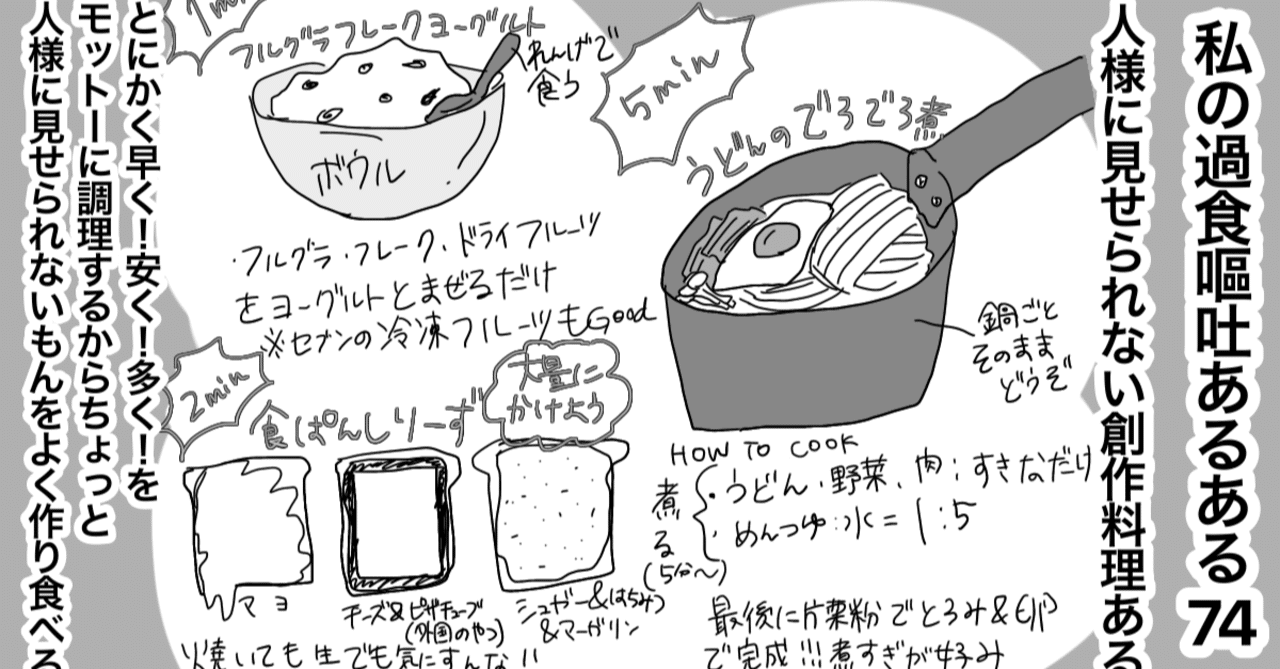 私の過食嘔吐あるある74
人様に見せられない創作料理ある
5min
うどんのでろでろ煮
鍋ごと
そのまま
どうぞ
HOW TO COOK
煮る
(5分〜)
・うどん・野菜、肉：すきなだけ
・めんつゆ：水＝1：5
最後に片栗粉でとろみ&卵
で完成!!!煮すぎが好み
1min
フルグラフレークヨーグルト
れんげで
食う
ボウル
・フルグラ・フレーク・ドライフルーツ
をヨーグルトとまぜるだけ
※セブンの冷凍フルーツもGood
2min
食ぱんしりーず
大量に
かけよう
マヨ
チーズ&ピザチューブ
(外国のやつ)
シュガー&はちみつ
&マーガリン
焼いても生でも気にすんな!!
とにかく早く！安く！多く！を
モットーに調理するからちょっと
人様に見せられないもんをよく作り食べる